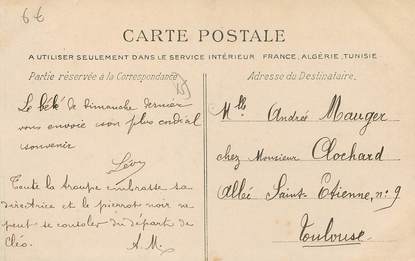 66
CARTE POSTALE
A UTILISER SEULEMENT DANS LE SERVICE INTÉRIEUR FRANCE, ALGÉRIE, TUNISIE
Partie réservée à la Correspondance
Adresse du Destinataire.
Le bébé de Dimanche dernier
vous envoie son plus cordial
souvenir
Lévy
Toute la troupe embrasse sa
directrice et le pierrot noir ne
peut se consoler du départ de
Cléo. A.M.
Mlle André Mauger
chez Monsieur Clochard
Allée Saint-Etienne, n: 9
Toulouse.